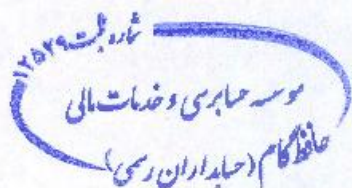 شماره ثبت ۱۲۵۲۹
موسسه حسابرسی و خدمات مالی
حافظ گام (حسابداران رسمی)